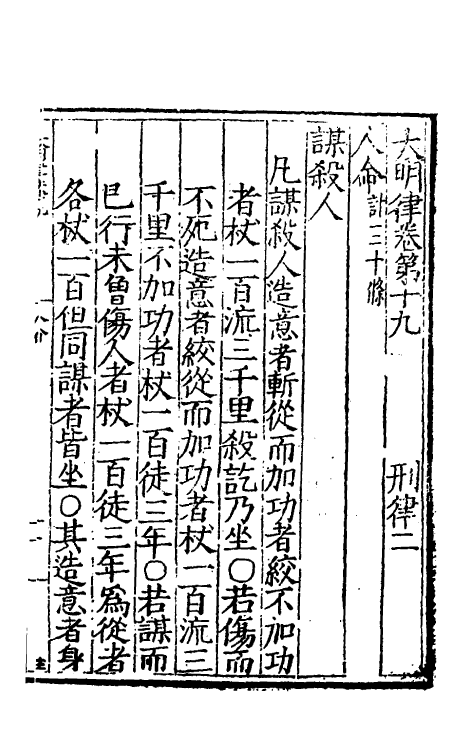 大明律卷第十九 刑律二
人命計二十條
謀殺人
凡謀殺人造意者斬從而加功者絞不加功
者杖一百流三千里殺訖乃坐○若傷而
不死造意者絞從而加功者杖一百流三
千里不加功者杖一百徒三年○若謀而
已行未曾傷人者杖一百徒三年為從者
各杖一百但同謀者皆坐○其造意者身
人命